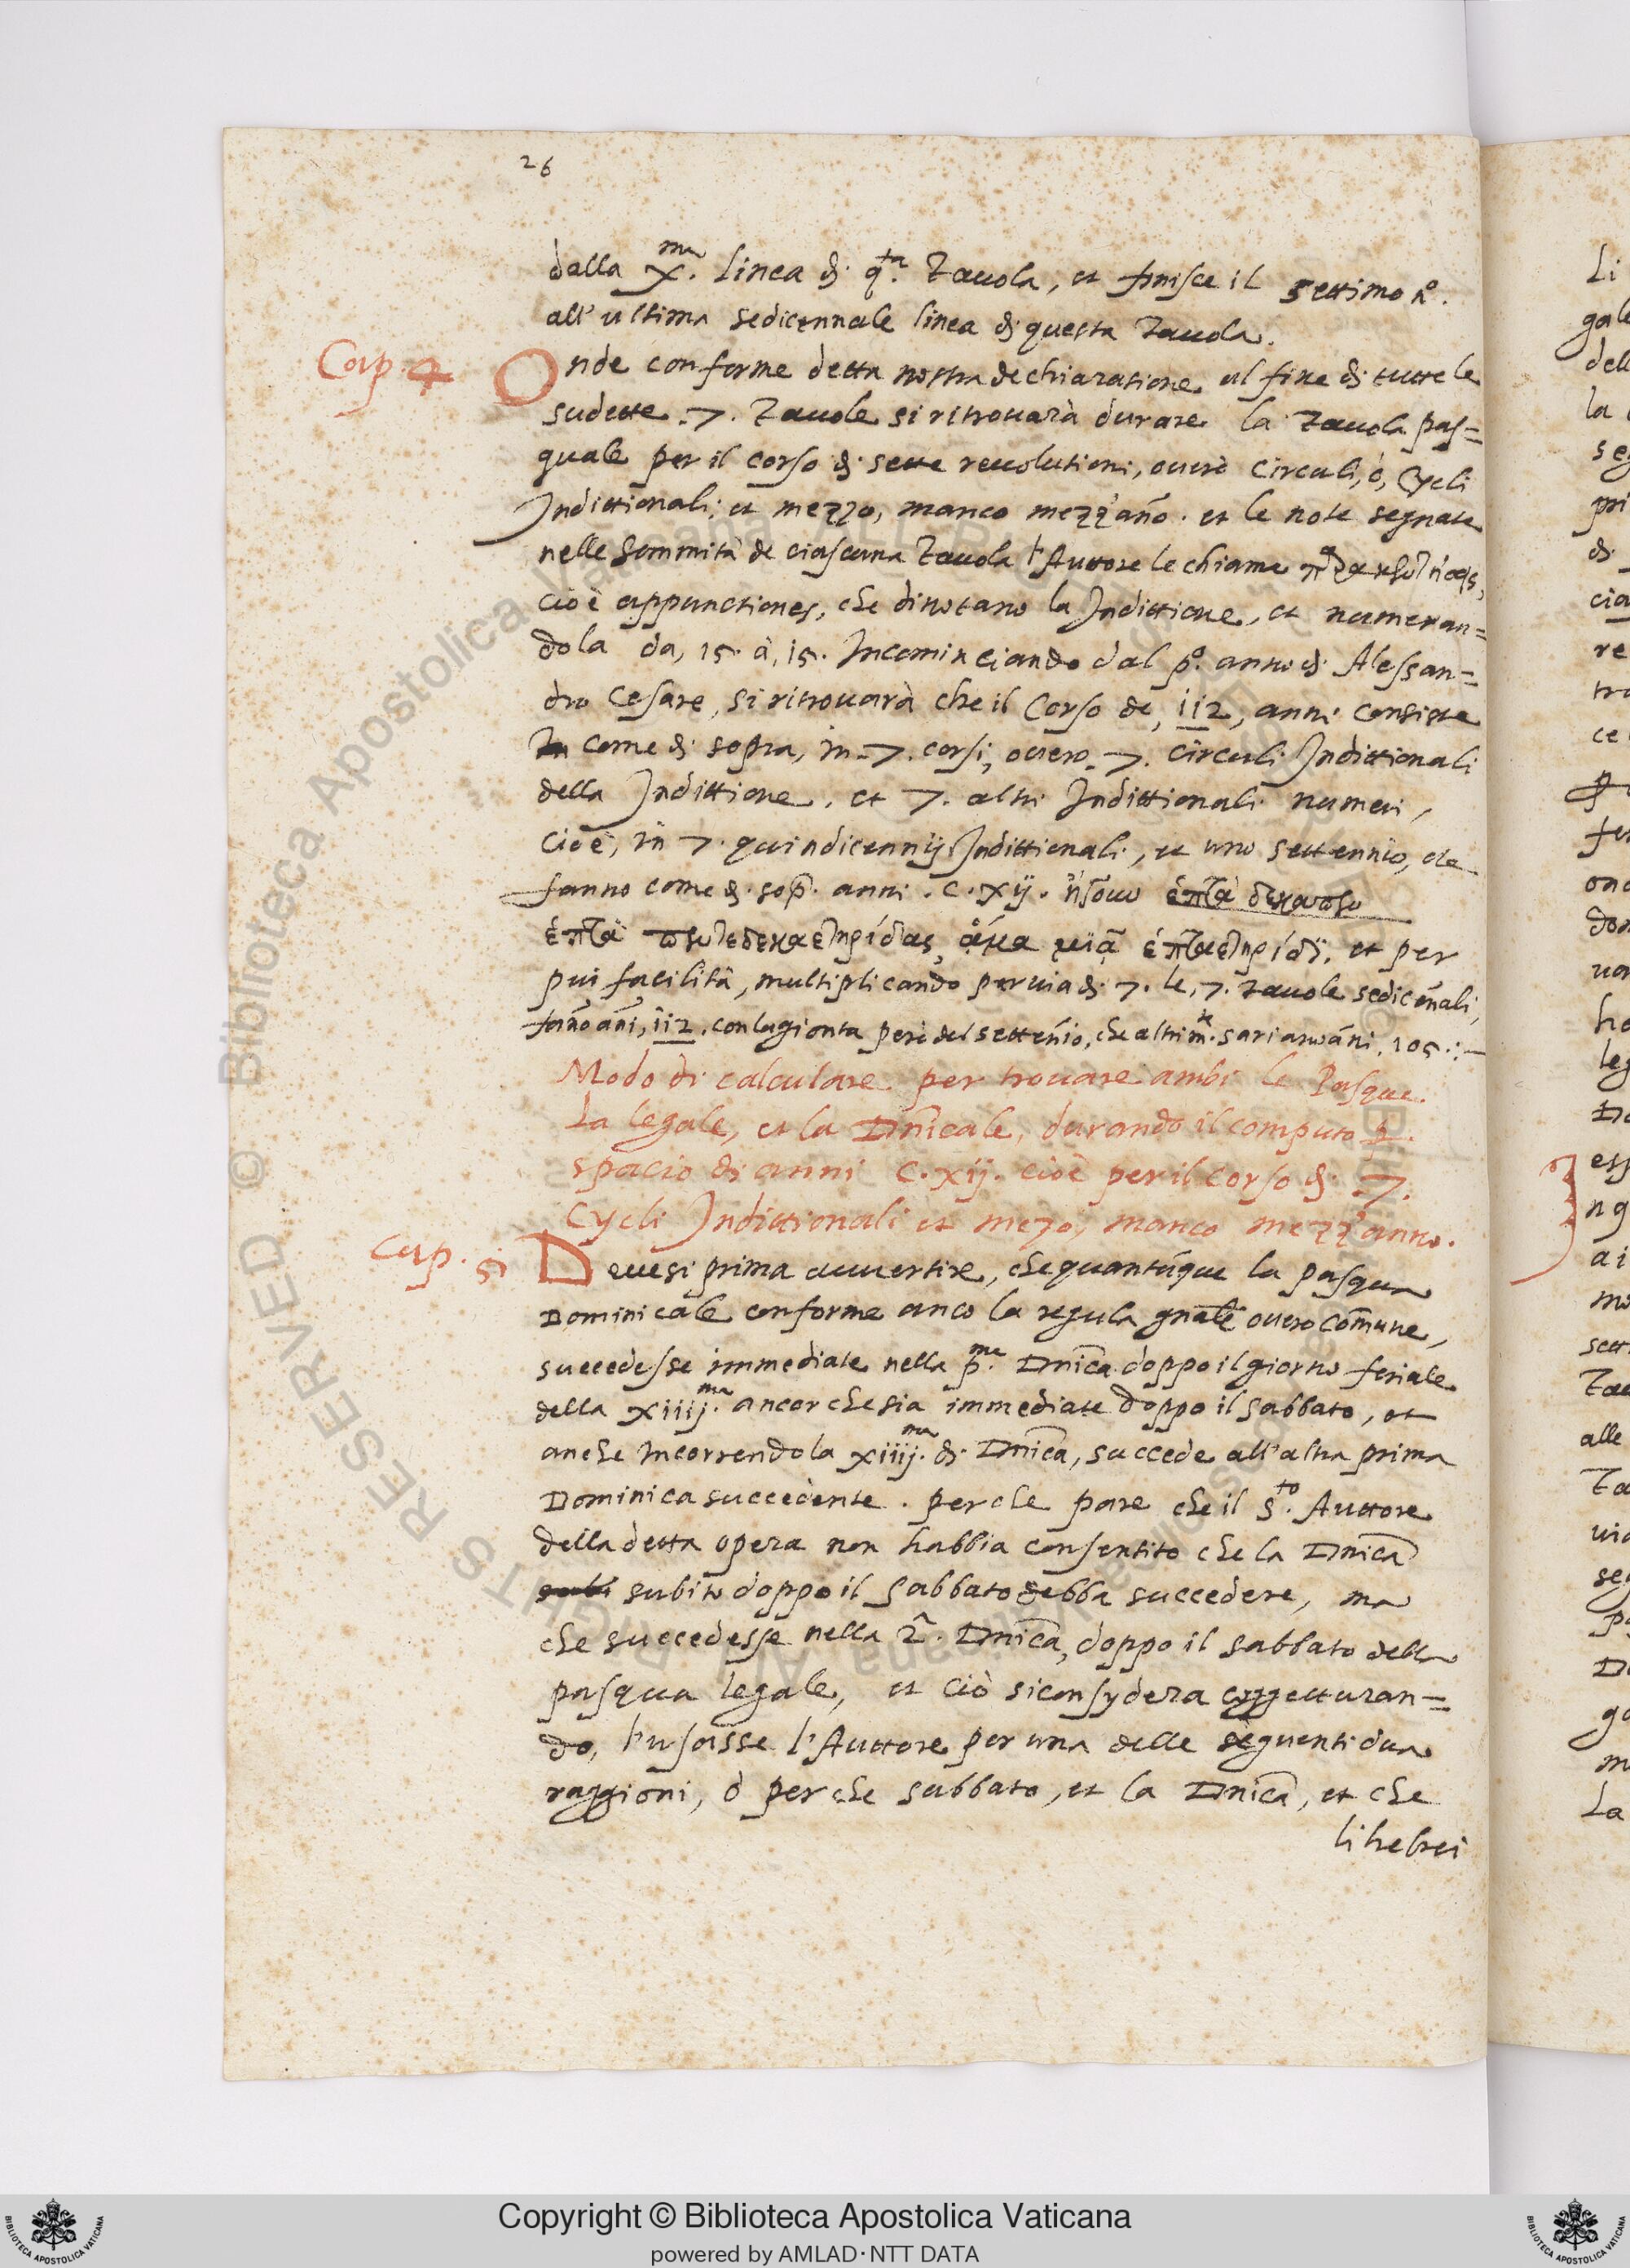 26
dalla X.ma linea di q.ta Tavola, et finisce il settimo n.o
all' ultima sedicennale linea di questa Tavola.
Cap. 4 Onde conforme detta nostra dechiaratione al fine di tutte le
sudette .7. Tavole si ritrouarà durare la Tavola pas=
quale per il corso di sette reuolutioni, ouerò Circuli, ò, Cycli
Indittionali; et mezzo, manco mezz'año. et le note segnate
nelle sommità de ciascuna Tavola l'Auttore le chiama
cioè appunctiones, che dinotano la Indittione, et numeran=
dola da, 15. à, 15. Incominciando dal p.o anno di Alessan=
dro Cesare, si ritrouarà che il Corso de, 112, anni consiste
come di sopra, in .7. corsi, ouero .7. circuli Indittionali
della Indittione, et 7. altri Indittionali numeri,
cioè, in 7. quindicennij Indittionali, et uno settennio, che
fanno come di sop̃. anni . C. xij. ἤτουν ἑπτὰ
ἑπτὰ πεντεδεκαετηρίδας, ἅμα μιᾷ ἑπταετηρίδι, et per
piu facilità, multiplicando per uia di 7. le, 7. Tavole sedicẽnali,
fañoañi, 112. con lagionta però del settẽnio, che altrim.te sariano ãni, 105 :-
Modo di calculare per trouare ambi le Pasque.
La legale, et la Dñicale, durando il computo p.
spacio di anni C. xij. cioè per il corso di .7.
Cycli Indittionali et mezo, manco mezz'anno.
Cap. 5 Deuesi prima auuertire, che quantũque la pasqua
Dominicale conforme anco la regula gñale ouero com̃une,
succedesse immediate nella p.ma Dñica doppo il giorno feriale
della xiiij.ma ancor che sia immediate doppo il sabbato, et
anche Incorrendo la xiiij.ma di Dñica, succede all'altra prima
Dominica succedente. perche pare che il S.to Auttore
della detta opera non habbia consentito che la Dñica
subito doppo il Sabbato debba succedere, ma
che succedesse nella 2.a Dñica, doppo il sabbato della
pasqua legale, et ciò si consydera coggetturan=
do, l'usasse l'Auttore per una delle seguenti due
raggioni, ò perche sabbato, et la Dñica, et che
li hebrei